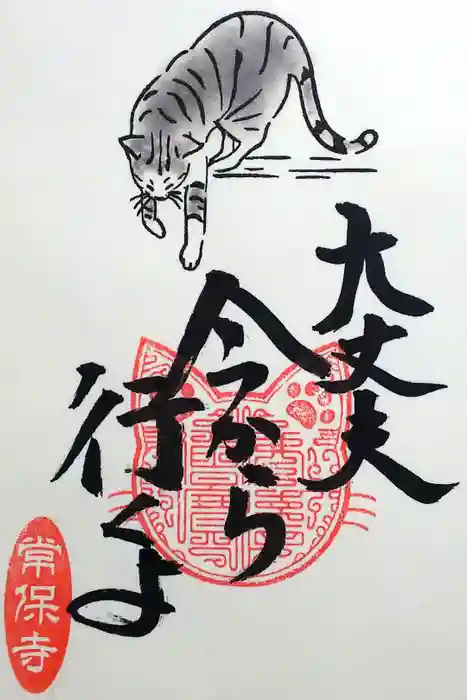 大丈夫
今から
行くよ
常保寺